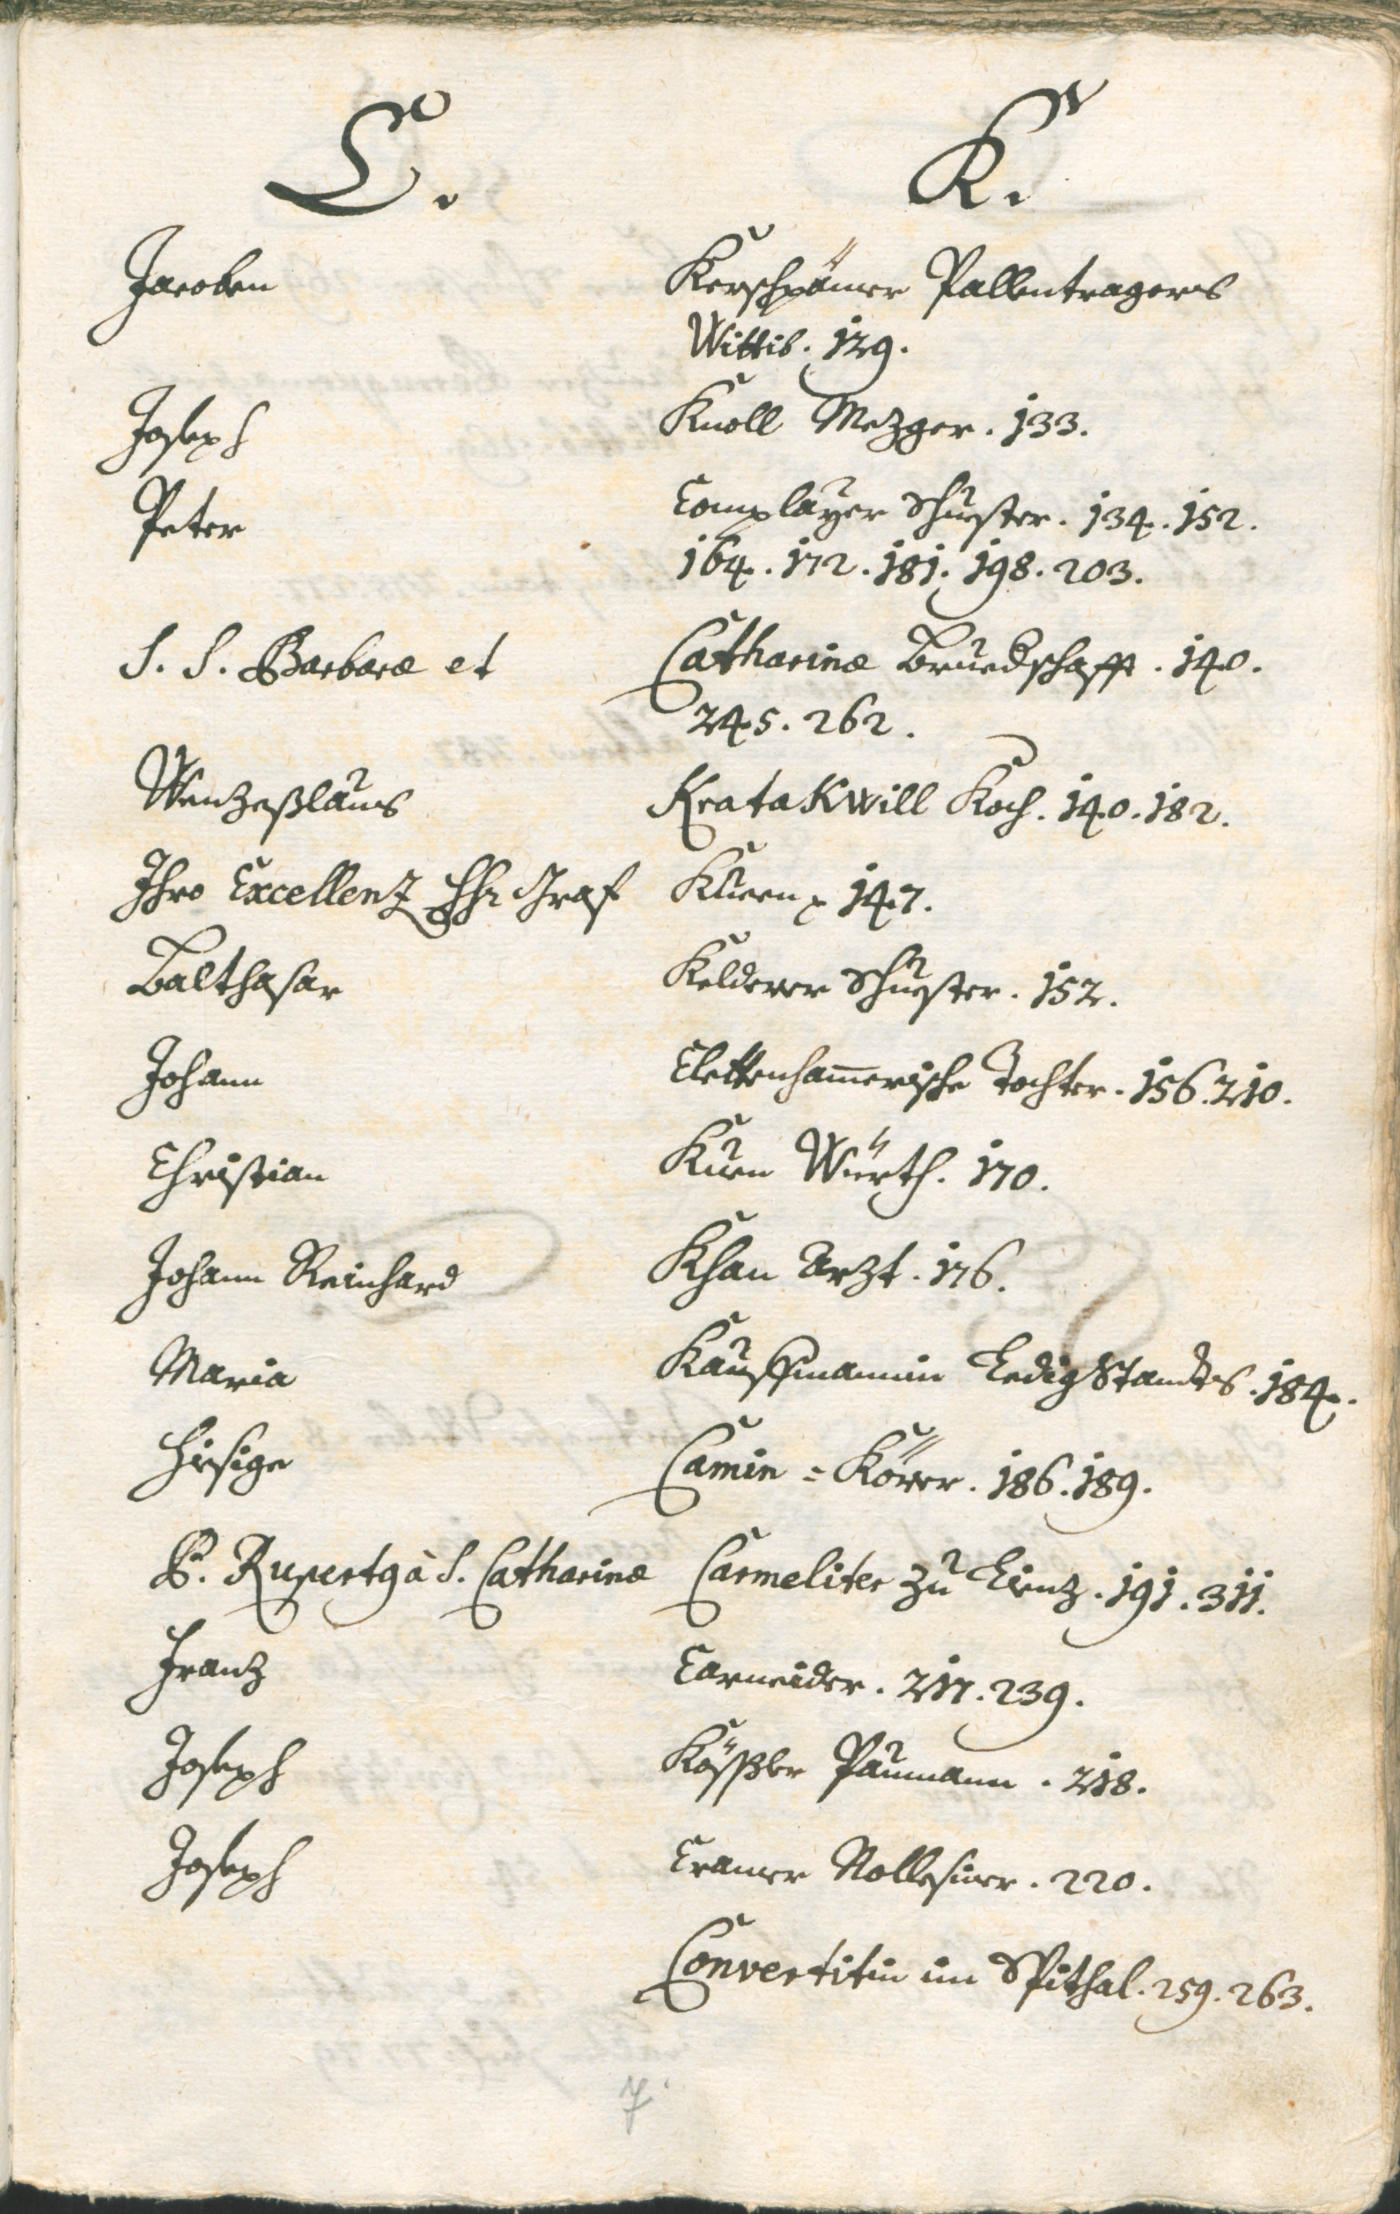 C. K.
Jacoben Kerschpämer Pallentragers
Wittib. 129.
Joseph Knoll Mezger. 133.
Peter Complayer Schuester. 134. 152.
164. 172. 181. 198. 203.
S. S. Barbaræ et Catharinæ Bruedschafft. 140.
245. 262.
Wentzeßlaus KrataKwill Koch. 140. 182.
Ihro Excellenz HH: Graf Kuen 147.
Balthasar Kelderer Schuester. 152.
Johann Clettenham̅erische Tochter. 156. 210.
Christian Kuen Würth. 170.
Johann Reinhard Khan Arzt. 176.
Maria Kauffmannin Ledig Standts. 184.
Hiesige Camin = Körer. 186. 189.
P. Rupertg à S. Catharina Carmeliter zu Lientz. 191. 311.
Frantz Carneider. 217. 239.
Joseph Kößler Paumann. 218.
Joseph Cramer 220.
Convertitin im Spithal. 259. 263.
7